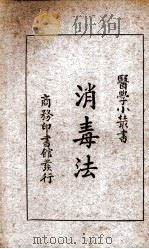 醫學小叢書
消毒法
商務印書館發行